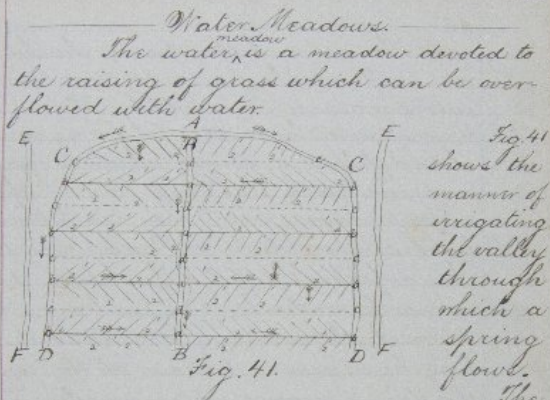 Water Meadows.
meadow
The water ^ is a meadow devoted to
the raising of grass which can be over-
flowed with water.
E A E
Fig. 41
C A C
shows the
manner of
irrigating
the valley
through
which a
spring
flows.
F D B D F
Fig. 41.
The